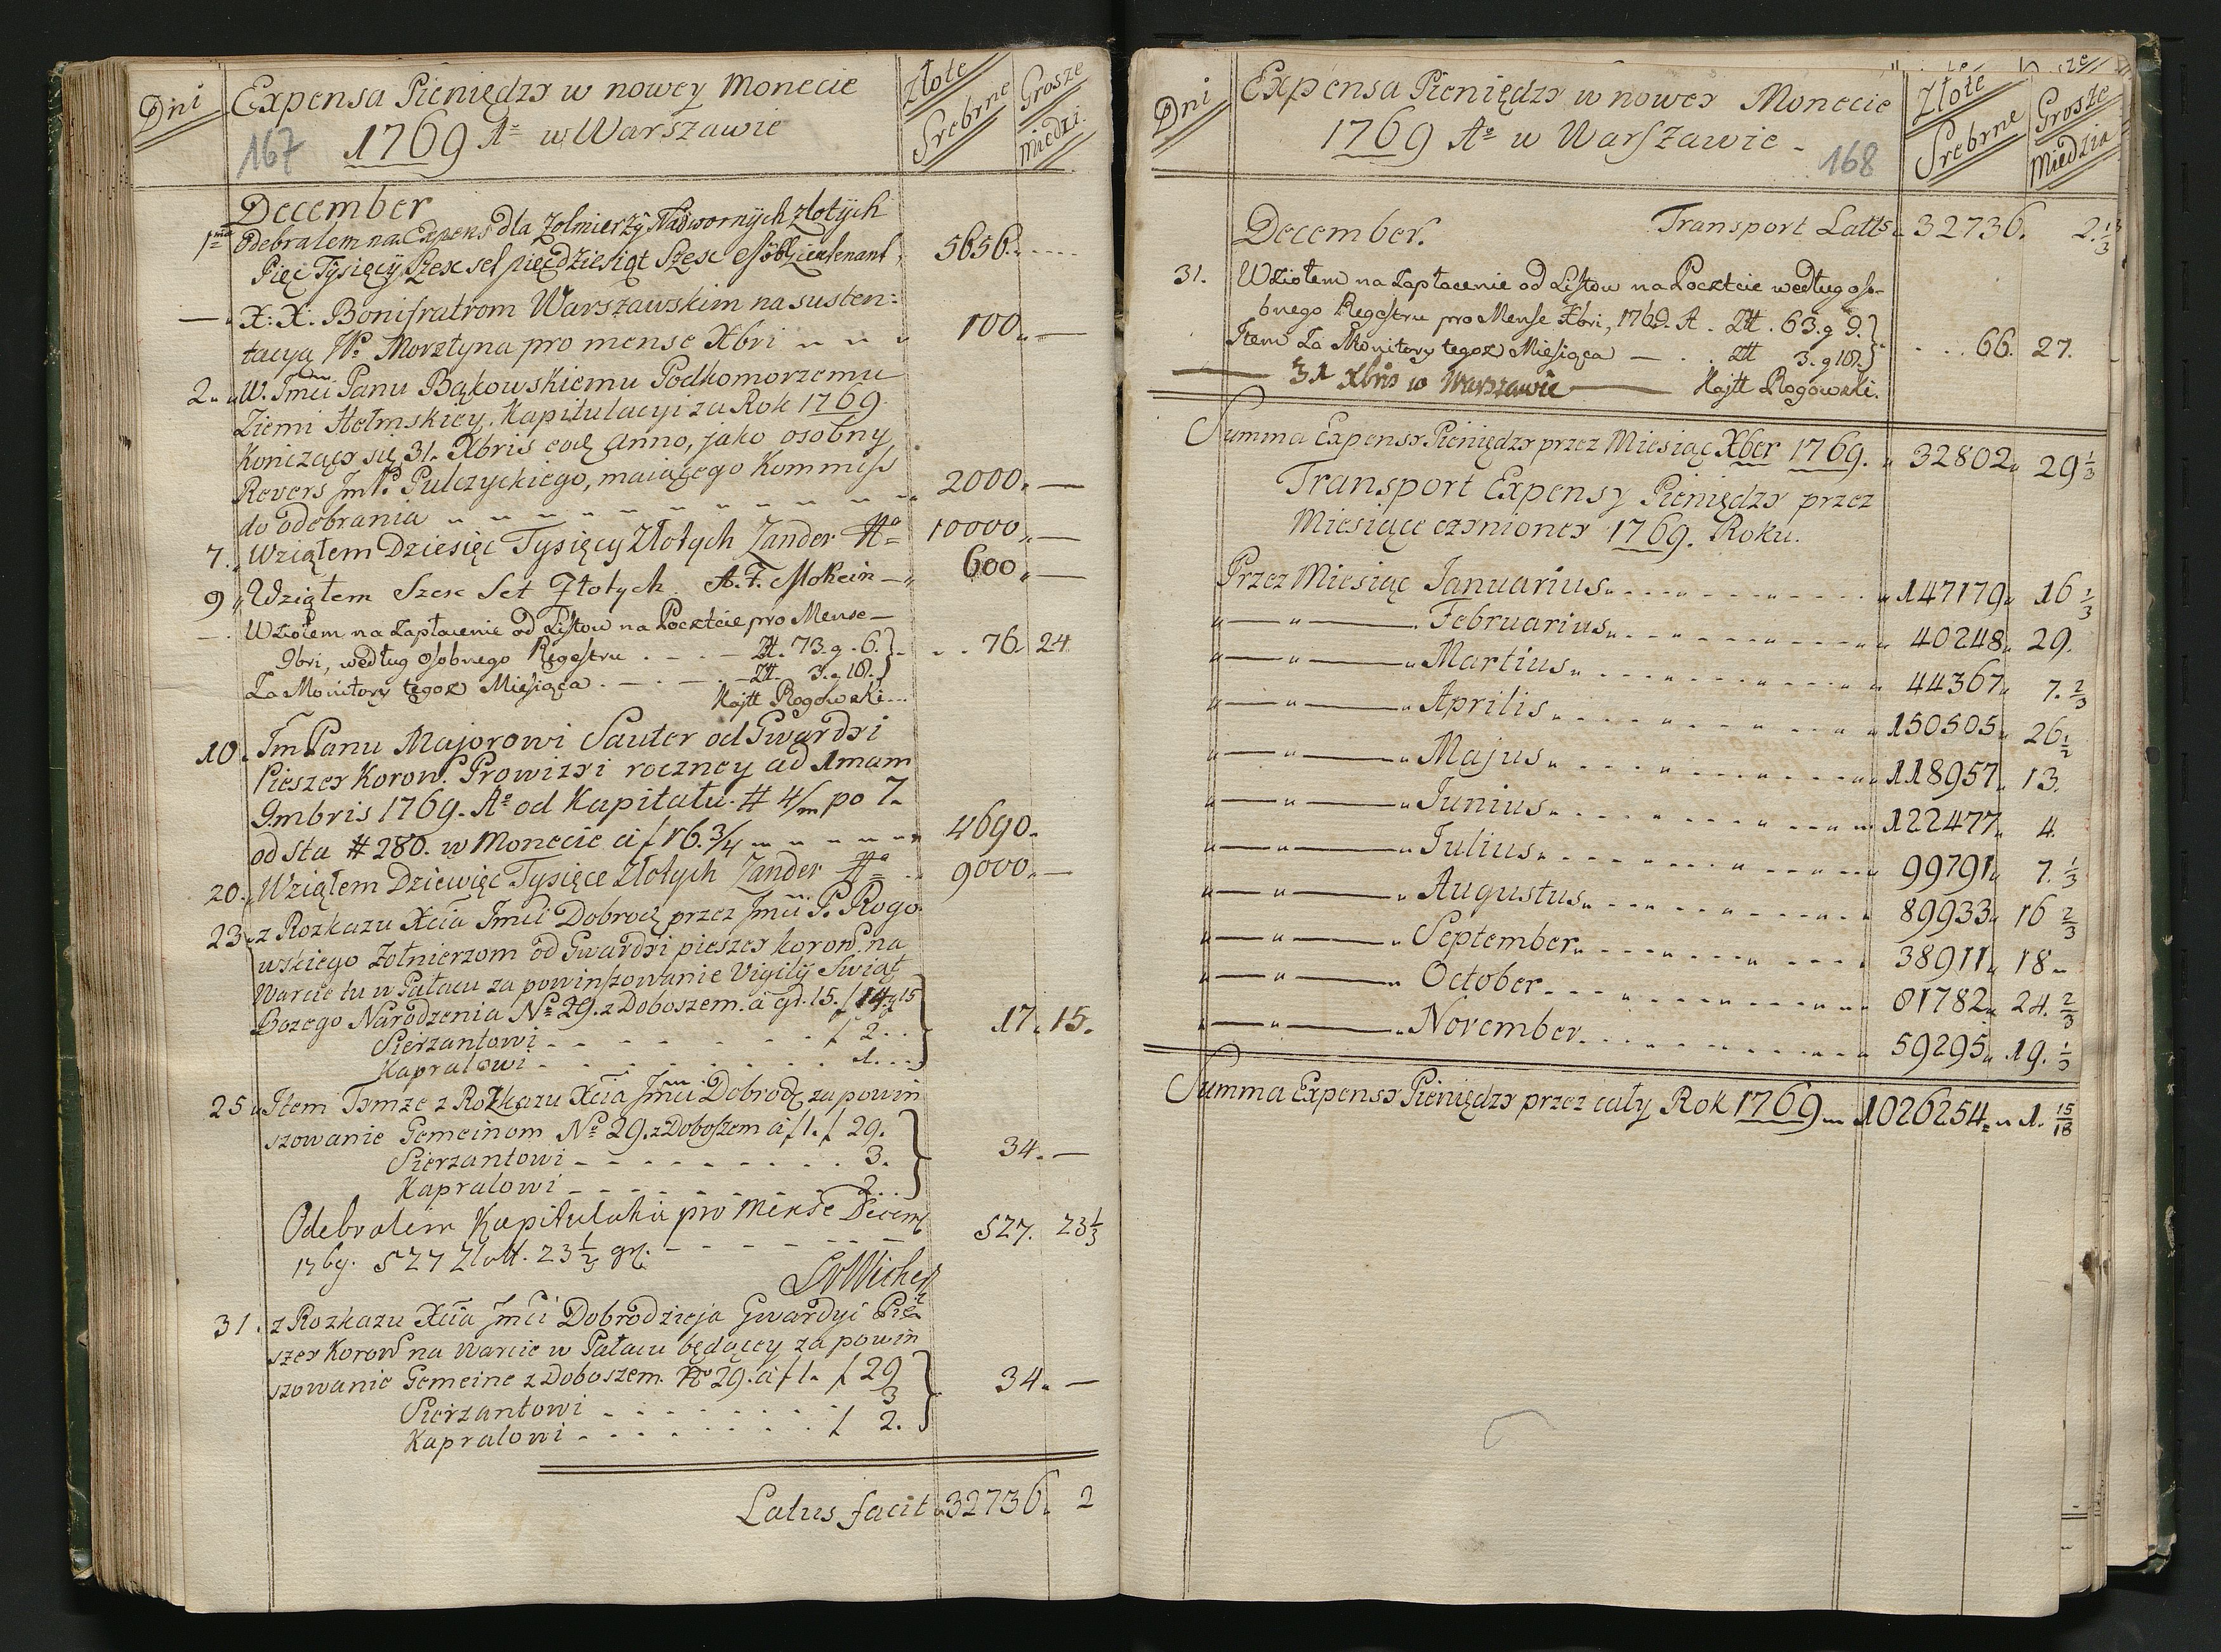 Dni
Expensa Pieniędzy w nowey Monecie
1769 Ao w Warszawie
167
Złote
Srebrne
Grosze
Miedzi.
December
1ma Odebralem na Expens dla Zolnierzy Nadwornÿch złotÿch
Pięc Tysięcÿ Szesc set pięcdziesiąt Szesc 5656.
— X: X. Bonifratrom Warszawskim na susten:
tacyą Wo Morsztyna pro mense Xbri 100. —
2. W. Jmci Panu Bąkowskiemu Podkomorzemu
Ziemi Hełmskiey, Kapitulacyi za Rok 1769
Kończący się 31. Xbris eod anno, jako osobny
Rewers Jm P. Pulczyckiego, maiącego Kommiss
do odebrania 2000. —
7. Wziąłem Dziesięć Tysięcy Złotych Zander 10000. —
9. Wziąłem Szesc Set Złotych A. F. Mokein 600. —
— Wziołem na Zapłacenie od Listow na Poczcie pro Mense
9bri, według osobnego Regestru Zł. 73. g. 6.} 76. 24
Za Monitory tegoz Miesiąca Zł. 3. g 18.}
Kajtt Rogowski
10. Jm Panu Majorowi Sauter od Gwardyi
Pieszey Koron. Prowizyi roczney ad 1mam
9mbris 1769. Ao od Kapitału # 4/m po 7.
od sta # 280. w Monecie a f 16. 3/4 4690.
20. Wziąłem Dziewięc Tysięce Złotych Zander 9000. —
23. z Rozkazu Xcia Jmci Dobrod przez Jmci P. Rogo
wskiego Zołnierzom od Gwardyi pieszey koron. na
Warcie tu w Pałacu za powinszowanie Vigilÿ Swiąt
Bozego Narodzenia No 29. z Doboszem. a gl. 15. f 14. g 15
Sierzantowi f 2. } 17. 15.
Kapralowi 1.
25. Item Tymze z Rozkazu Xcia Jmci Dobrod za powin
szowanie Gemeinom No 29. z Doboszem a f 1. f 29.
Sierzantowi 3. } 34. —
Kapralowi 2.
Odebralem Kapitulatia pro Mense Decem
1769. 527 Zlott. 23 1/3 gr. 527. 23 1/3
31. z Rozkazu Xcia Jmci Dobrodzieja Gwardyi Pie
szey Koron na Warcie w Pałacu będącey za powin
szowanie Gemeine z Doboszem. No 29. a f 1. f 29
Sierzantowi 3 } 34. —
Kapralowi f 2.
Latus facit 32736. 2
Dni
Expensa Pieniędzy w nowey Monecie
1769 Ao w Warszawie
168
Złote
Srebrne
Grosze
Miedzia
December. Transport Latts 32736. 2. 1/3
31. Wziołem na Zapłacenie od Listow na Poczcie według oso-
bnego Regestru pro Mense Xbri, 1769. A. Złt. 63. g 9.}
Item Za Monitory tegoz Miesiąca — Złt 3. g 18.} 66. 27.
31 Xbris w Warszawie — Kajtt Rogowski.
Summa Expensy Pieniędzy przez Miesiąc Xber 1769. 32802. 29 1/3
Transport Expensy Pieniędzy przez
Miesiące czynioney 1769. Roku.
Przez Miesiąc Januarius 147179. 16 1/3
Februarius 40248. 29.
Martius 44367. 7. 2/3
Aprilis 150505. 26 1/2
Majus 118957. 13.
Junius 122477. 4.
Julius 99791. 7. 1/3
Augustus 89933. 16 2/3
September 38911. 18
October 81782. 24. 2/3
November 59295. 19. 1/3
Summa Expensy Pieniędzy przez cały Rok 1769 1026254. 1. 15/18